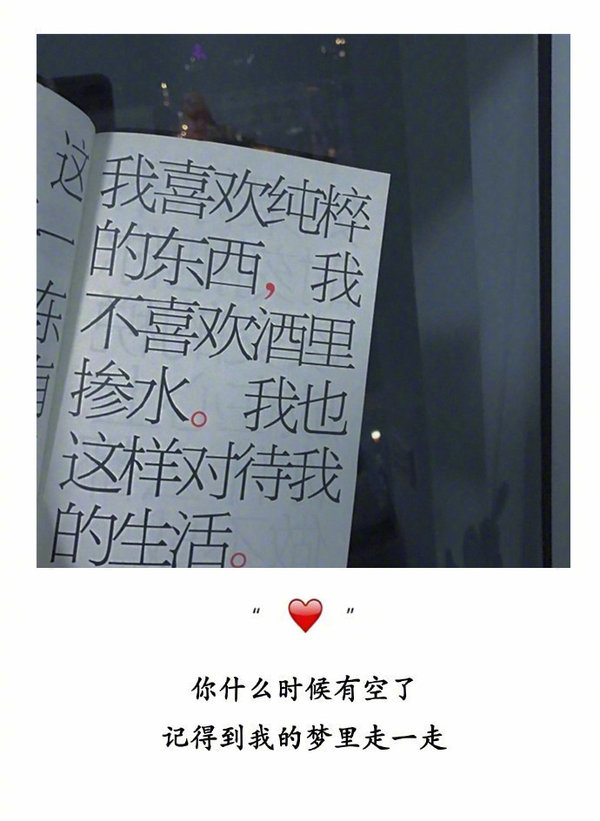 我喜欢纯粹
的东西，我
不喜欢酒里
掺水。我也
这样对待我
的生活。
这
一
“ ❤️ ”
你什么时候有空了
记得到我的梦里走一走